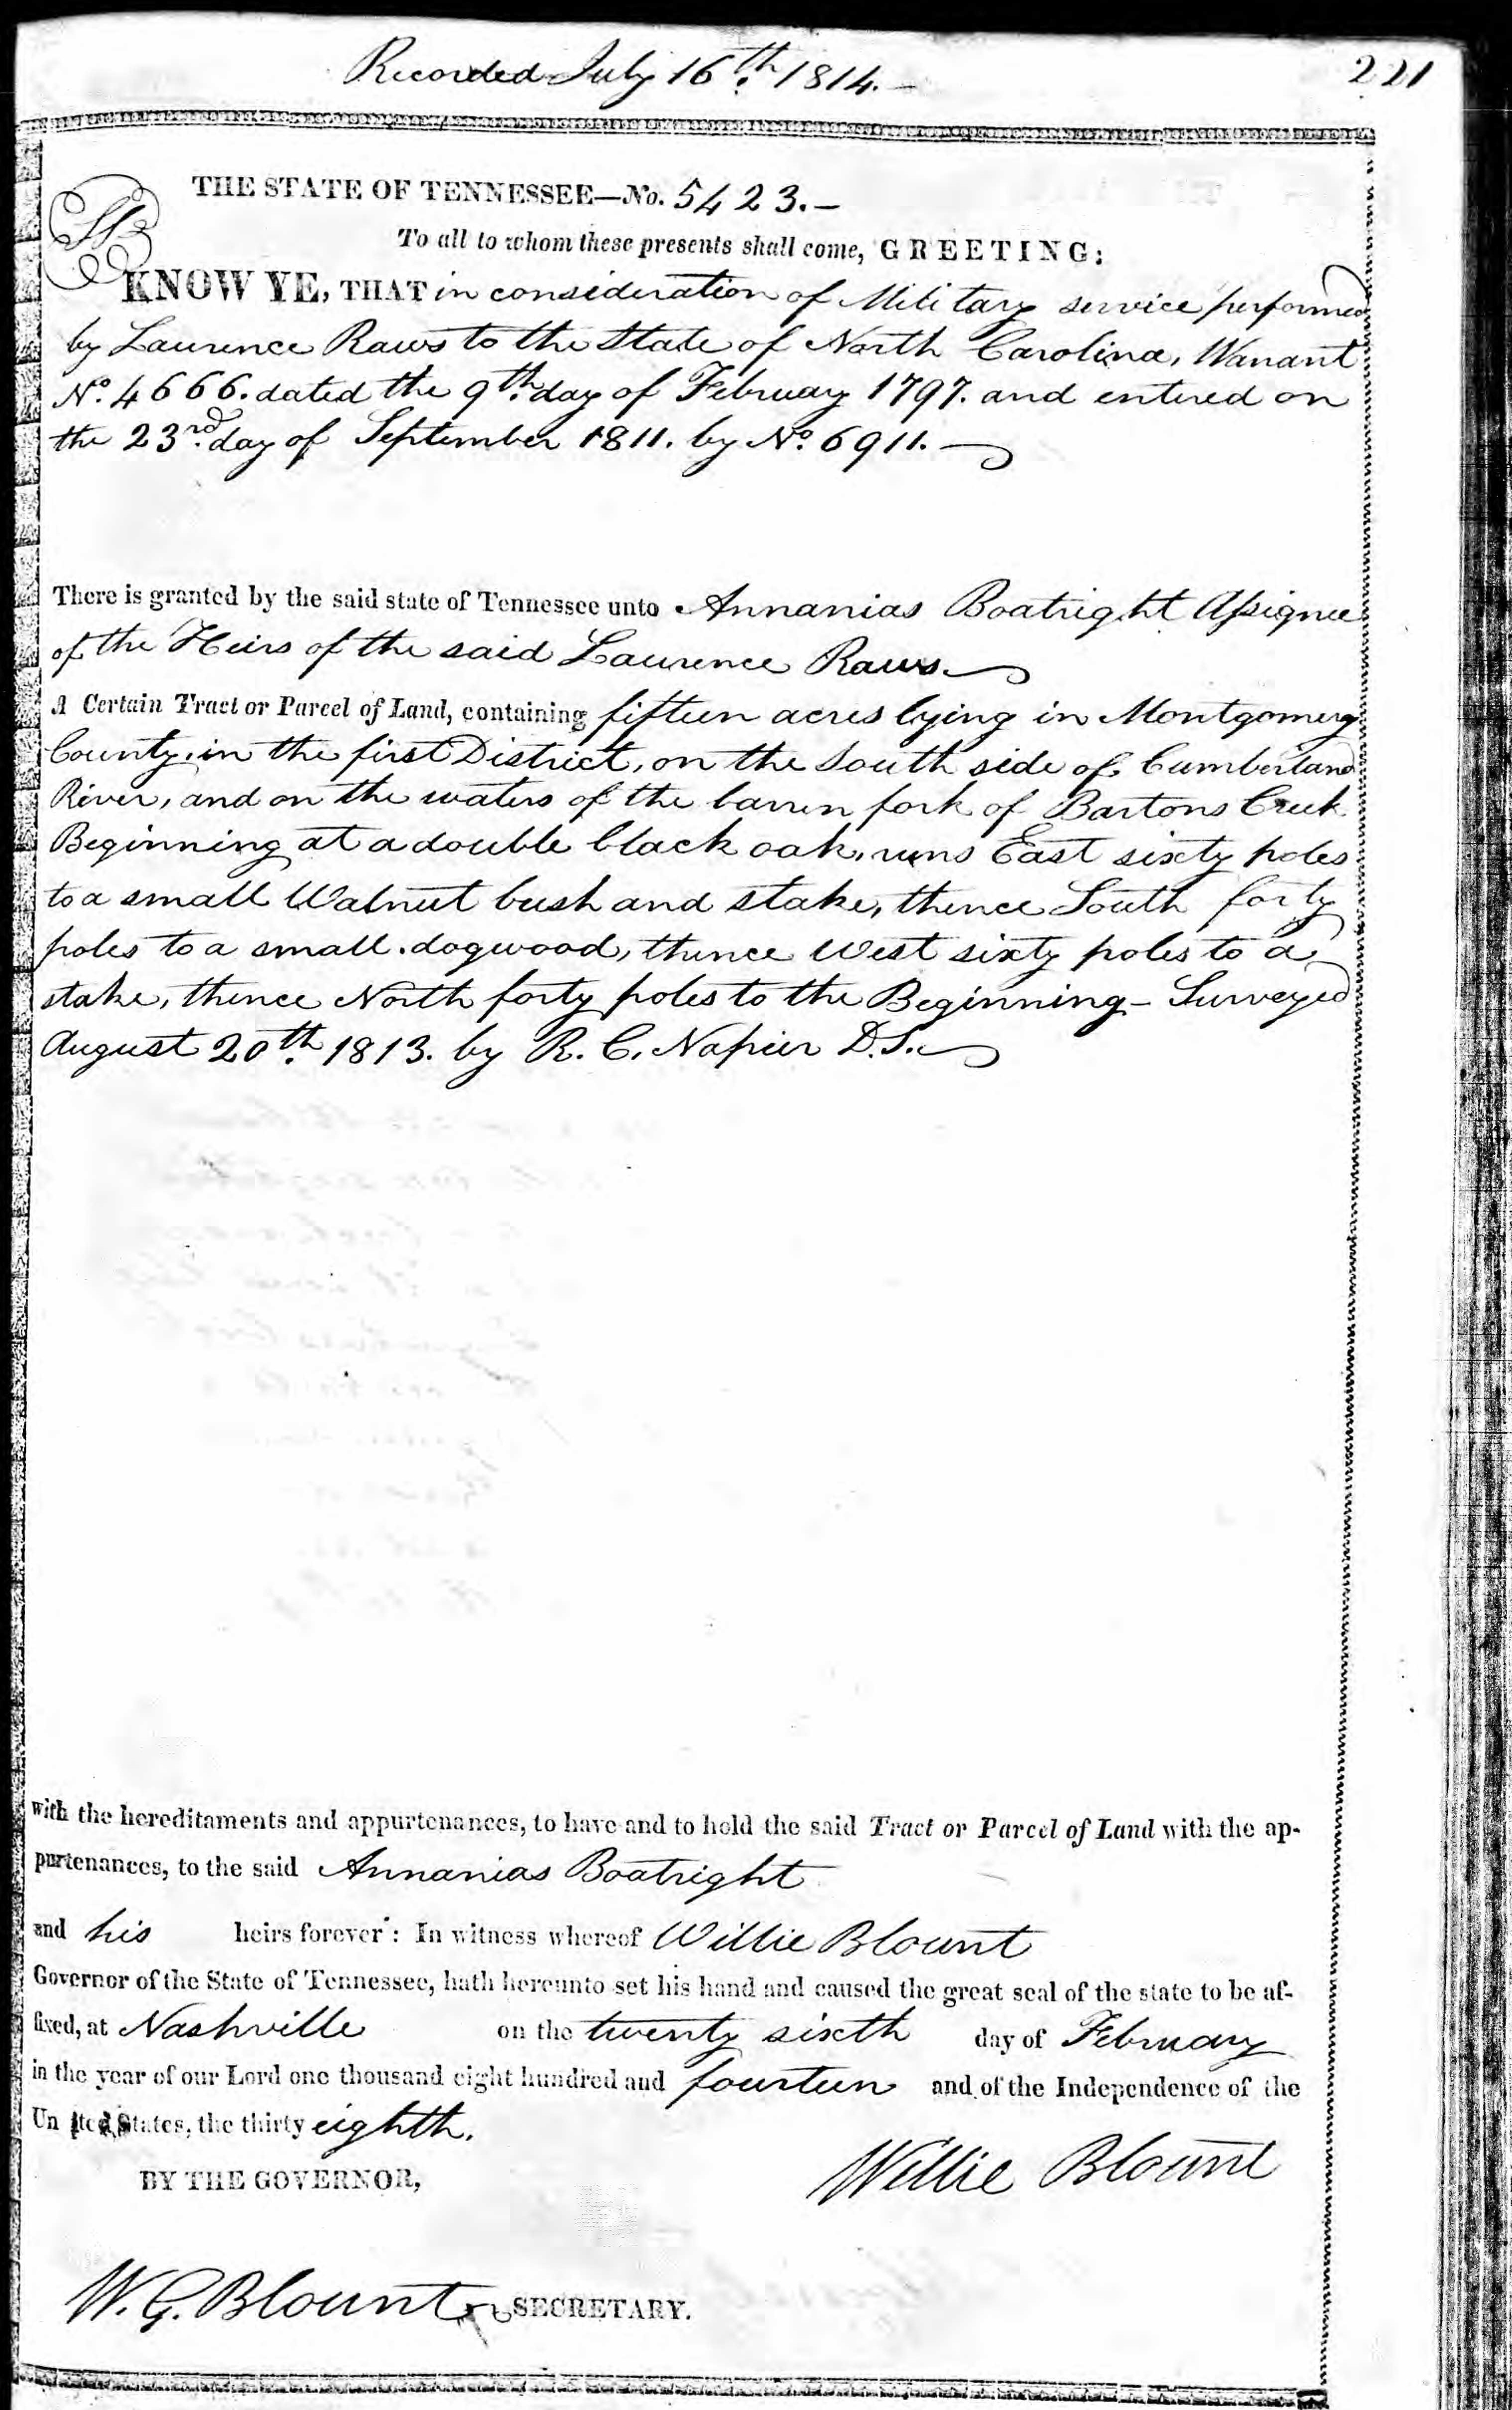 Recorded July 16th. 1814.-
221
THE STATE OF TENNESSEE—No. 5423.-
To all to whom these presents shall come, GREETING:
KNOW YE, THAT in consideration of Military service performed
by Laurence Raws to the State of North Carolina, Warrant
No. 4666. dated the 9th. day of February 1797. and entered on
the 23rd. day of September 1811. by No. 6911.
There is granted by the said state of Tennessee unto Annanias Boatright Assignee
of the Heirs of the said Laurence Raws
A Certain Tract or Parcel of Land, containing fifteen acres lying in Montgomery
County, in the first District, on the South side of Cumberland
River, and on the waters of the barren fork of Bartons Creek
Beginning at a double black oak, runs East sixty poles
to a small Walnut bush and stake, thence South forty
poles to a small dogwood, thence West sixty poles to a
stake, thence North forty poles to the Beginning - Surveyed
August 20th. 1813. by R. C. Napier D.S.
with the hereditaments and appurtenances, to have and to hold the said Tract or Parcel of Land with the ap-
purtenances, to the said Annanias Boatright
and his heirs forever: In witness whereof Willie Blount
Governor of the State of Tennessee, hath hereunto set his hand and caused the great seal of the state to be af-
fixed, at Nashville on the twenty sixth day of February
in the year of our Lord one thousand eight hundred and fourteen and of the Independence of the
United States, the thirty eighth.
BY THE GOVERNOR,
Willie Blount
W. G. Blount SECRETARY.